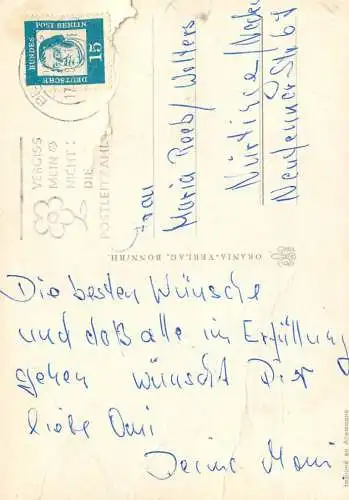 DEUTSCHE
BUNDES
POST BERLIN
15
VERGISS
MEIN
NICHT:
DIE
POSTLEITZAHL
Frau
Maria Reeb/Wolters
ORANIA-VERLAG, BONN/RH.
Die besten Wünsche
und daß alle in Erfüllung
gehen wünscht Dir
liebe Omi
Deine Moni
Imprimé en Allemagne